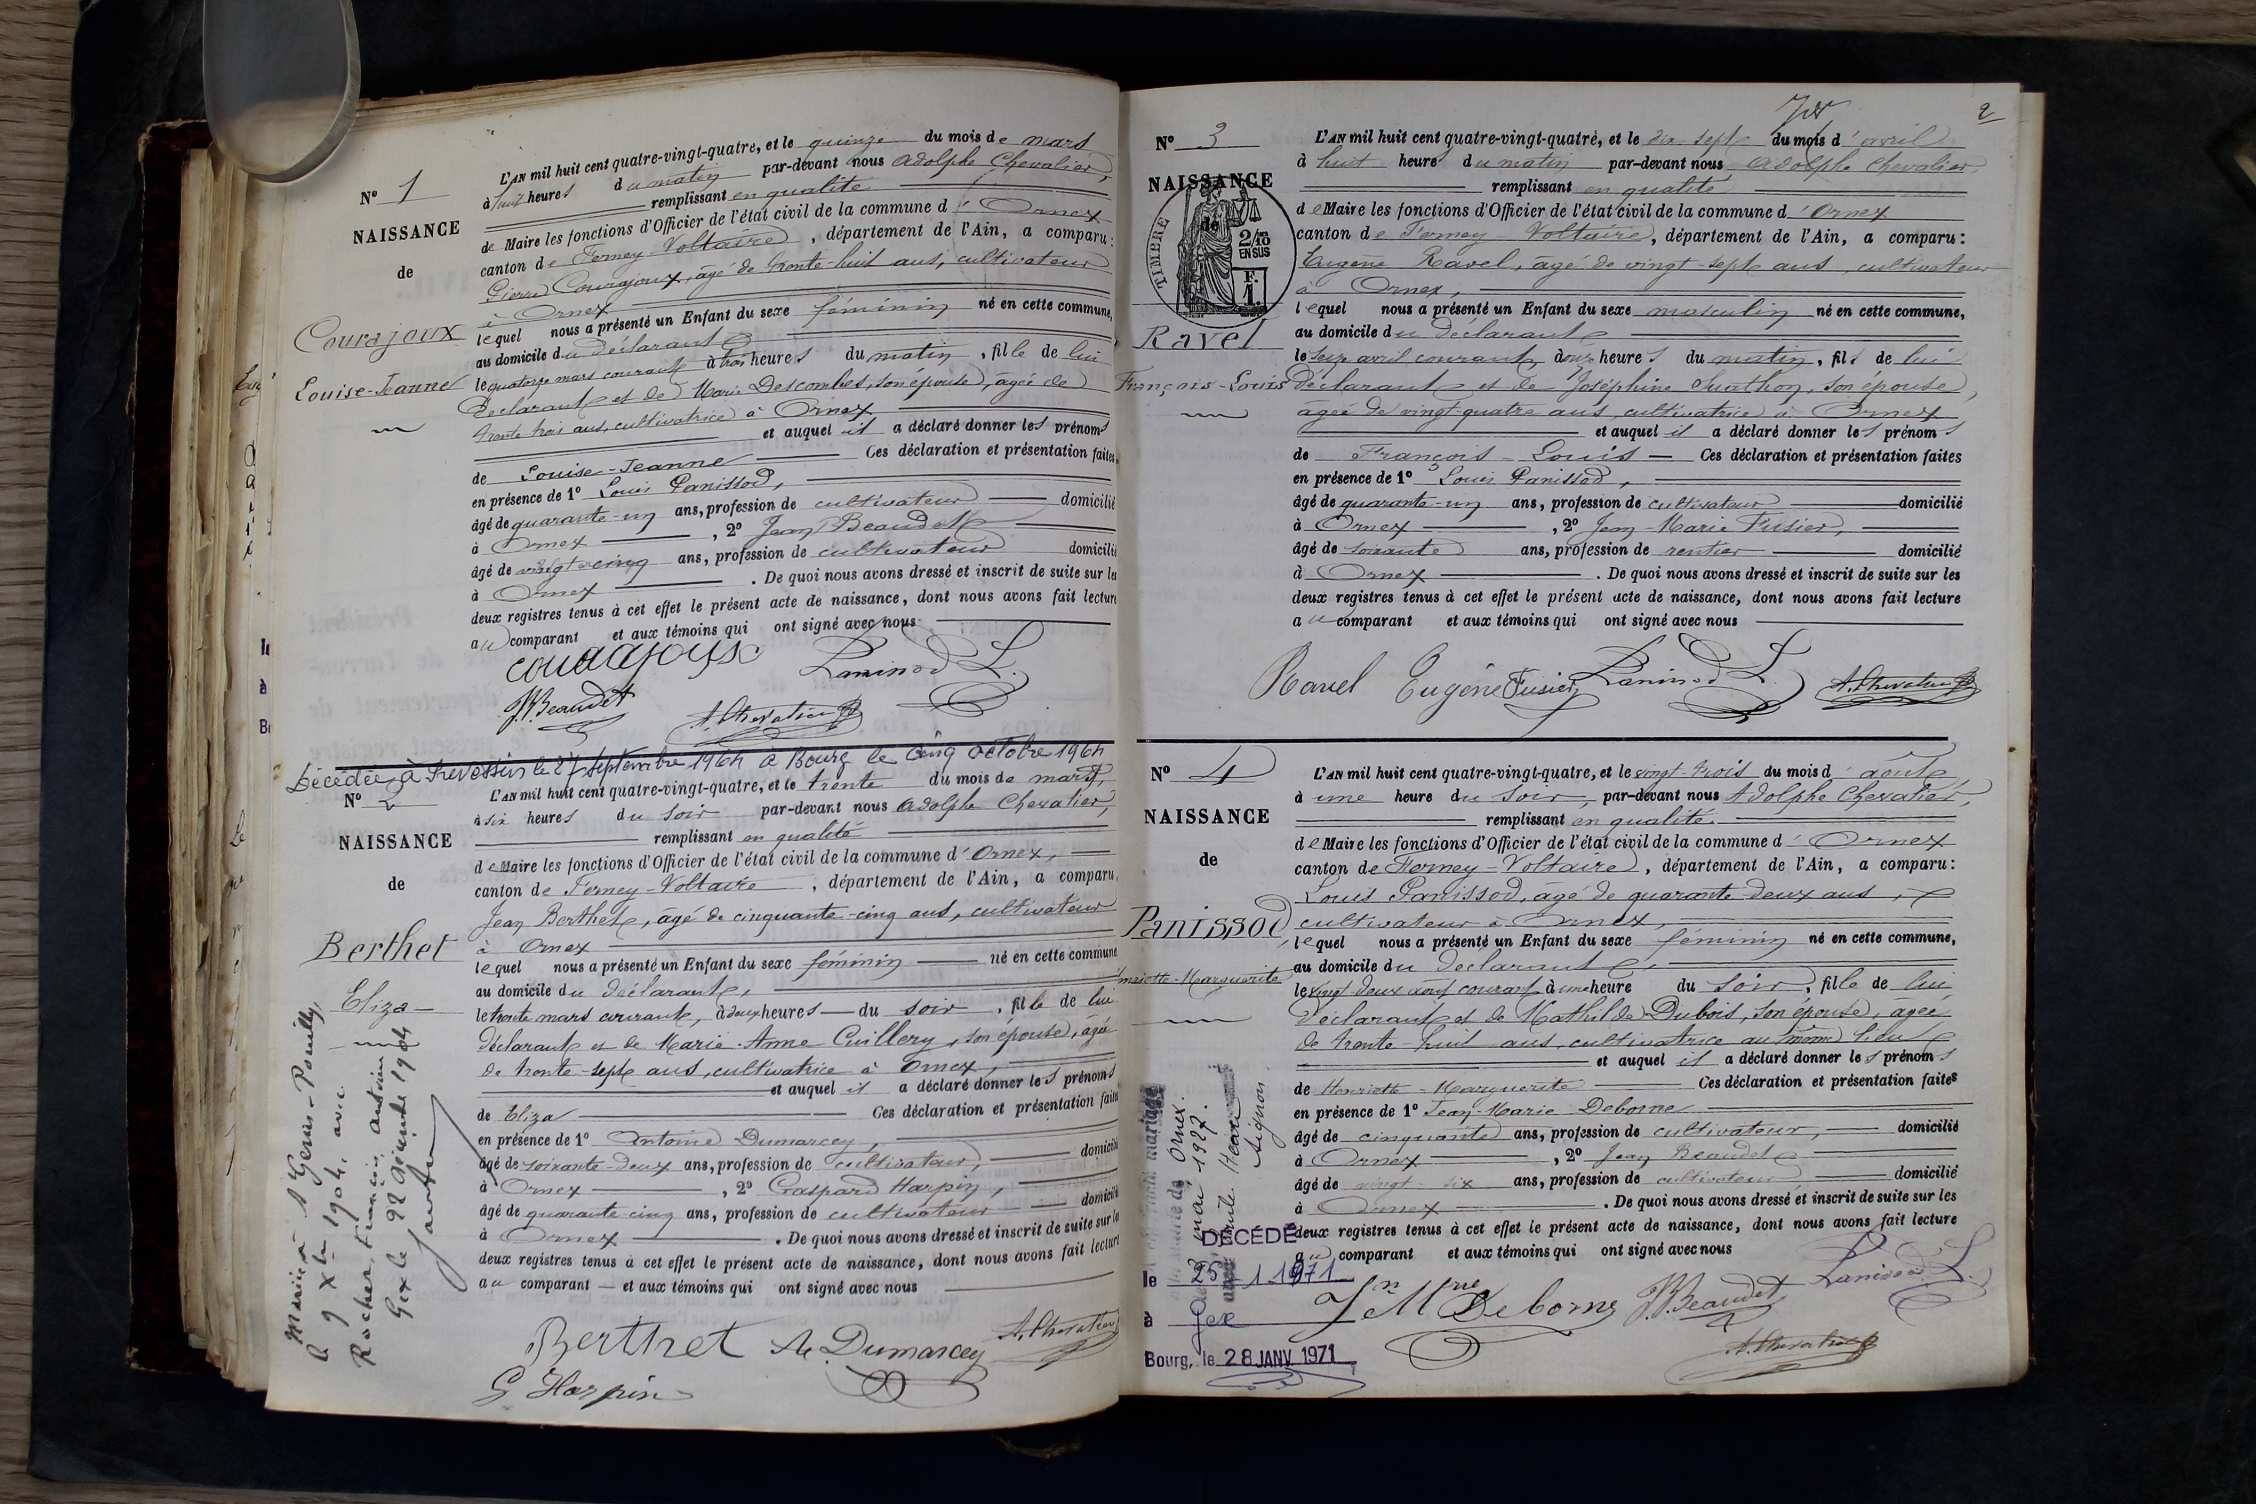 N° 1
NAISSANCE
de
Courajoux
Louise-Jeanne
L'AN mil huit cent quatre-vingt-quatre, et le quinze du mois de mars
à huit heures du matin par-devant nous Adolphe Chevalier,
remplissant en qualité
de Maire les fonctions d'Officier de l'état civil de la commune d'Ornex
canton de Ferney-Voltaire, département de l'Ain, a comparu:
Pierre Courajoux, âgé de trente-huit ans, cultivateur
à Ornex
lequel nous a présenté un Enfant du sexe féminin né en cette commune,
au domicile du déclarant
le quatorze mars courant à trois heures du matin, fille de lui
déclarant et de Marie Descombes, son épouse, âgée de
trente trois ans, cultivatrice à Ornex
et auquel il a déclaré donner les prénoms
de Louise-Jeanne Ces déclaration et présentation faites
en présence de 1° Louis Panissod,
âgé de quarante-un ans, profession de cultivateur domicilié
à Ornex, 2° Jean Beaudet
âgé de vingt-cinq ans, profession de cultivateur domicilié
à Ornex. De quoi nous avons dressé et inscrit de suite sur les
deux registres tenus à cet effet le présent acte de naissance, dont nous avons fait lecture
au comparant et aux témoins qui ont signé avec nous
courajoux Panissod L.
J. Beaudet A. Chevalier
Décédée à Prevessin le 27 septembre 1964 à Bourg le cinq octobre 1964
N° 2
NAISSANCE
de
Berthet
Eliza
L'AN mil huit cent quatre-vingt-quatre, et le trente du mois de mars,
à six heures du soir par-devant nous Adolphe Chevalier,
remplissant en qualité
de Maire les fonctions d'Officier de l'état civil de la commune d'Ornex,
canton de Ferney-Voltaire, département de l'Ain, a comparu
Jean Berthet, âgé de cinquante-cinq ans, cultivateur
à Ornex
lequel nous a présenté un Enfant du sexe féminin né en cette commune
au domicile du déclarant,
le trente mars courant, à deux heures du soir, fille de lui
déclarant et de Marie-Anne Cuillery, son épouse, âgée
de trente-sept ans, cultivatrice à Ornex,
et auquel il a déclaré donner les prénoms
de Eliza Ces déclaration et présentation faites
en présence de 1° Antoine Dumarcey,
âgé de soixante-deux ans, profession de cultivateur, domicilié
à Ornex, 2° Gaspard Harpin,
âgé de quarante cinq ans, profession de cultivateur domicilié
à Ornex. De quoi nous avons dressé et inscrit de suite sur les
deux registres tenus à cet effet le présent acte de naissance, dont nous avons fait lecture
au comparant et aux témoins qui ont signé avec nous
Berthet A. Dumarcey A. Chevalier
G Harpin
Mariée à St Genis-Pouilly
a 9 Xbre 1904, avec
Rocher François antoine
Gex le 22 Xbre 1904
2
N° 3
NAISSANCE
de
TIMBRE
2/10
EN SUS
F.
1.
Ravel
François-Louis
L'AN mil huit cent quatre-vingt-quatre, et le dix-sept du mois d'avril
à huit heure du matin par-devant nous Adolphe Chevalier
remplissant en qualité
de Maire les fonctions d'Officier de l'état civil de la commune d'Ornex
canton de Ferney-Voltaire, département de l'Ain, a comparu:
Eugène Ravel, âgé de vingt-sept ans, cultivateur
à Ornex,
lequel nous a présenté un Enfant du sexe masculin né en cette commune,
au domicile du déclarant
le seize avril courant, à onze heures du matin, fils de lui
déclarant et de Joséphine son épouse,
âgée de vingt-quatre ans, cultivatrice à Ornex
et auquel il a déclaré donner les prénoms
de François-Louis Ces déclaration et présentation faites
en présence de 1° Louis Panissod,
âgé de quarante-un ans, profession de cultivateur domicilié
à Ornex, 2° Jean-Marie Fusier,
âgé de soixante ans, profession de rentier domicilié
à Ornex. De quoi nous avons dressé et inscrit de suite sur les
deux registres tenus à cet effet le présent acte de naissance, dont nous avons fait lecture
au comparant et aux témoins qui ont signé avec nous
Ravel Eugène Fusier Panissod L. A. Chevalier
N° 4
NAISSANCE
de
Panissod
Henriette-Marguerite
L'AN mil huit cent quatre-vingt-quatre, et le vingt-trois du mois d'août
à une heure du soir, par-devant nous Adolphe Chevalier,
remplissant en qualité
de Maire les fonctions d'Officier de l'état civil de la commune d'Ornex
canton de Ferney-Voltaire, département de l'Ain, a comparu:
Louis Panissod, âgé de quarante-deux ans,
cultivateur à Ornex,
lequel nous a présenté un Enfant du sexe féminin né en cette commune,
au domicile du déclarant,
le vingt deux août courant à une heure du soir, fille de lui
déclarant et de Mathilde Dubois, son épouse, âgée
de trente-huit ans, cultivatrice au même lieu
et auquel il a déclaré donner les prénoms
de Henriette-Marguerite Ces déclaration et présentation faites
en présence de 1° Jean-Marie Deborne
âgé de cinquante ans, profession de cultivateur, domicilié
à Ornex, 2° Jean Beaudet
âgé de vingt-six ans, profession de cultivateur domicilié
à Ornex. De quoi nous avons dressé et inscrit de suite sur les
deux registres tenus à cet effet le présent acte de naissance, dont nous avons fait lecture
au comparant et aux témoins qui ont signé avec nous
Jn Mrie Deborne J. Beaudet Panissod L.
A. Chevalier
mariage
Ornex.
mai 1927.
DÉCÉDÉ
le 25-1 1971
à Gex
Bourg, le 28 JANV 1971